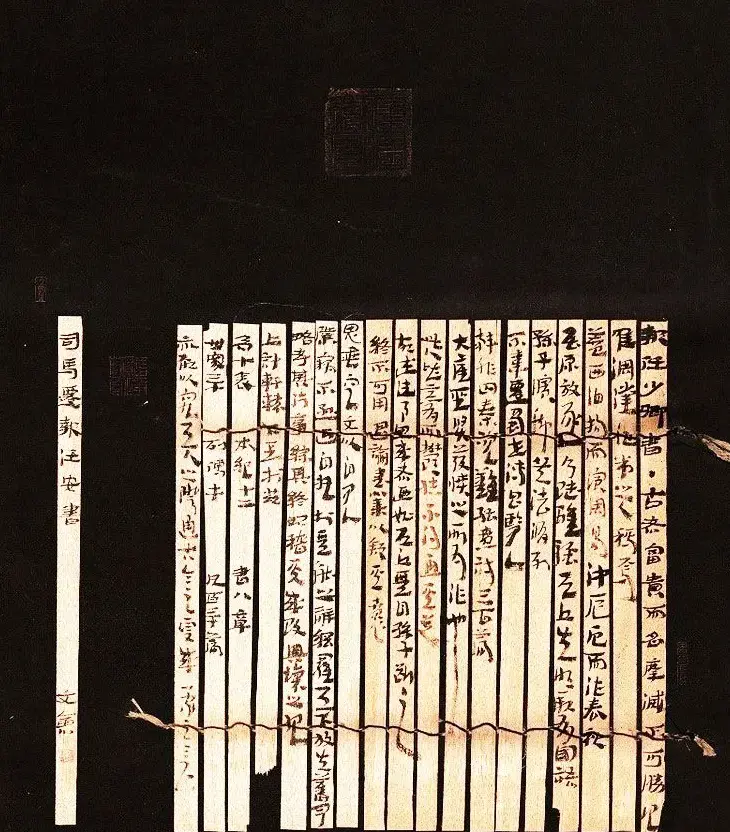 報任少卿書·古者富貴而名摩滅不可勝記
唯倜儻非常之人稱焉
蓋西伯拘而演周易 仲尼厄而作春秋
屈原放逐乃賦離騷左丘失明厥有國語
孫子臏腳兵法脩列
不韋遷蜀世傳呂覽
韓非囚秦說難孤憤詩三百篇
大底聖賢發憤之所為作也
此人皆意有所鬱結不得通其道
故述往事思來者乃如左丘無目孫子斷足
終不可用退論書策以舒其憤
思垂空文以自見
僕竊不遜近自託於無能之辭網羅天下放失舊聞
略考其行事綜其終始稽其成敗興壞之紀
上計軒轅下至于茲
為十表 本紀十二 書八章
世家三十 列傳七十 凡百三十篇
亦欲以究天人之際通古今之變成一家之言
司馬遷報任安書